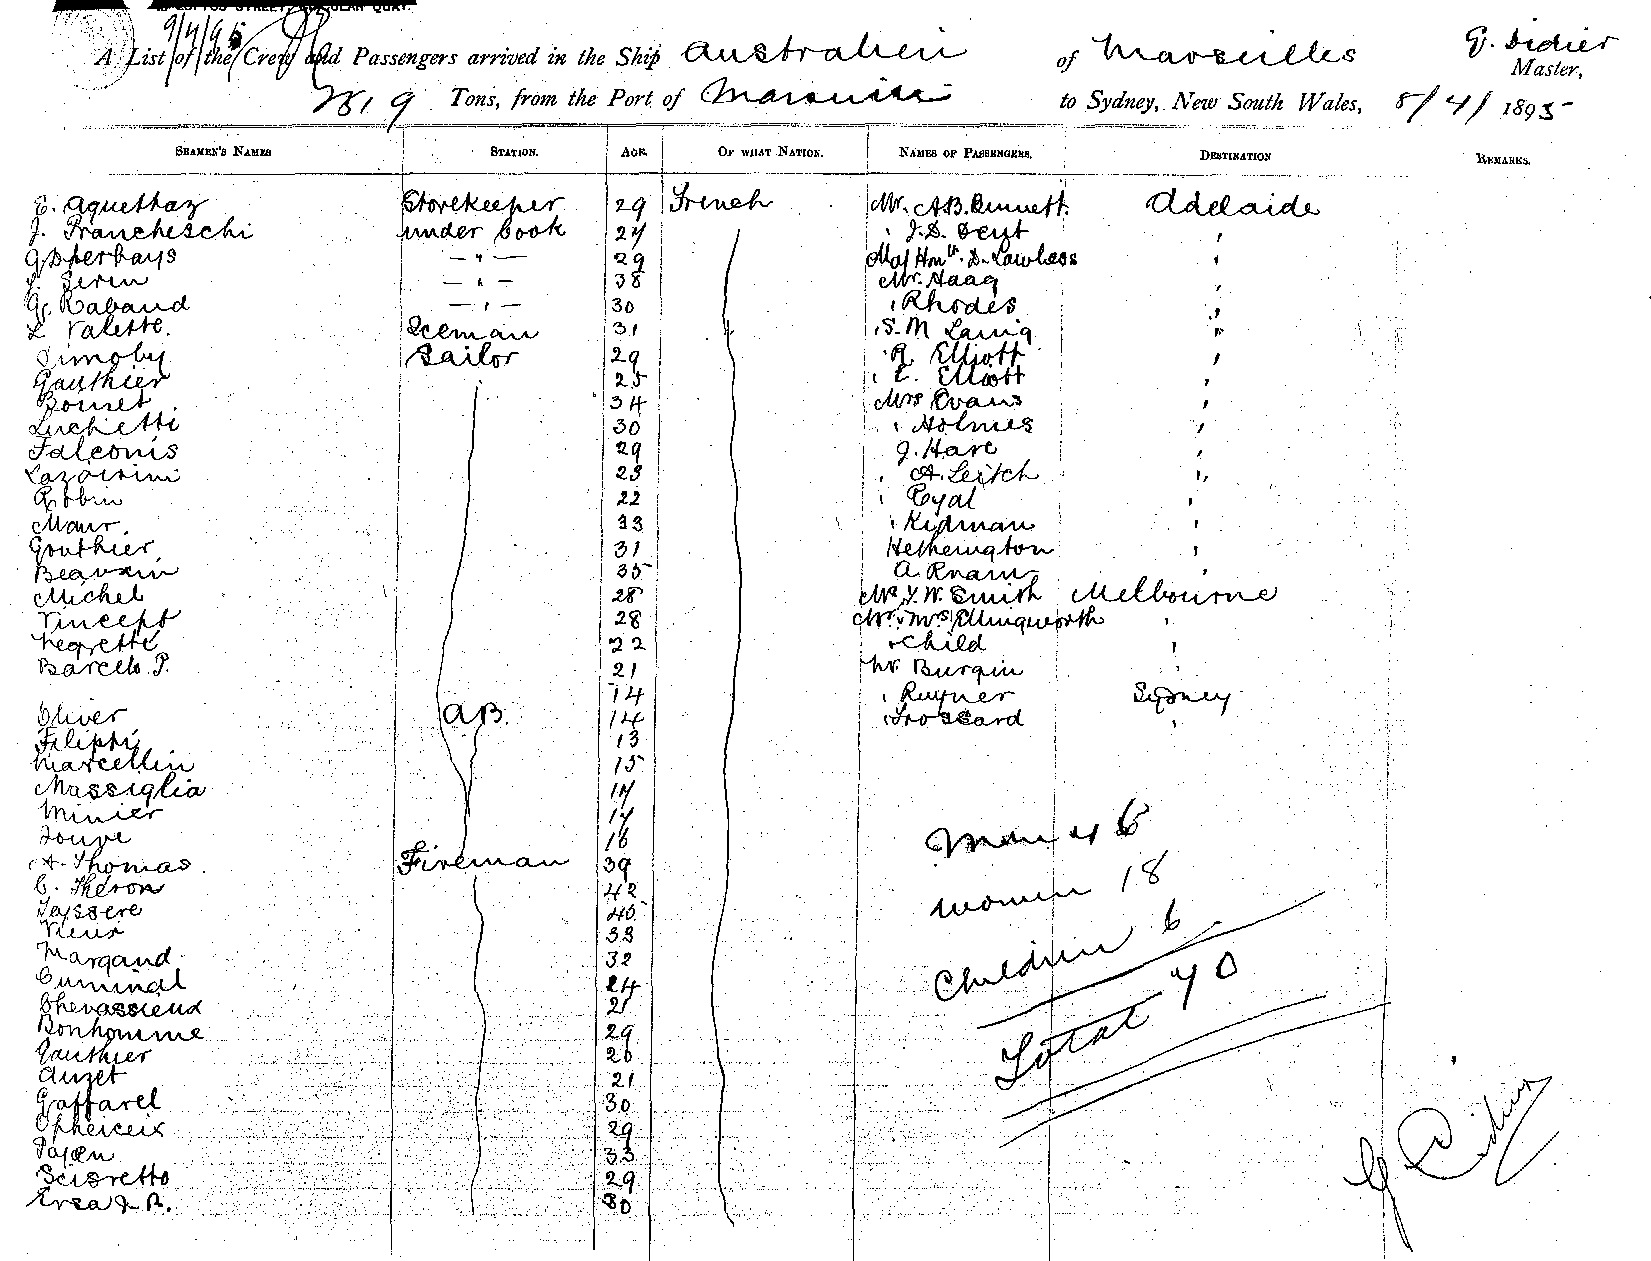 LOFTUS STREET, CIRCULAR QUAY.
9/4/95
A List of the Crew and Passengers arrived in the Ship Australien of Marseilles G. Didier Master,
Tons, from the Port of to Sydney, New South Wales, 8/4/1895
SEAMEN'S NAMES STATION. AGE OF WHAT NATION. NAMES OF PASSENGERS. DESTINATION REMARKS.
E. Aquettaz Storekeeper 29 French Mr. A.B. Bennett. Adelaide
J. Francheschi under cook 27 " J.D. "
— " — 29 Maj Hon D. Lawless "
— " — 38 Mr. Haag "
G. Rabaud — " — 30 " Rhodes "
L Valette. Iceman 31 " S. M Laing "
Simoby Sailor 29 " R Elliott "
Gauthier 25 " E. Elliott "
34 Mrs Evans "
Luchetti 30 " Holmes "
Falconis 29 J. Hare "
23 " A. Leitch "
Robin 22 " "
Maur. 33 " Kidman "
Gouthier, 31 Hetherington "
35 A. "
Michel 28 Mr. J. W. Smith Melbourne
Vincent 28 Mr. & Mrs Ellingworth "
Negrette 22 " Child "
Barcelo P. 21 Mr Burgin "
14 " Sydney
Oliver A.B. 14 " Trossard "
Filippi 13
Marcellin 15
Massiglia 17
Minier 17
Jouve 16
A. Thomas. Fireman 39
C. Theron 42
Tayssere 40
33
Margand 32
Cuminal 24
21
Bonhomme 29
Gauthier 26
Auzet 21
Gaffarel 30
29
33
Scisretto 29
30
Men 46
Women 18
Children 6
Total 70
G Didier